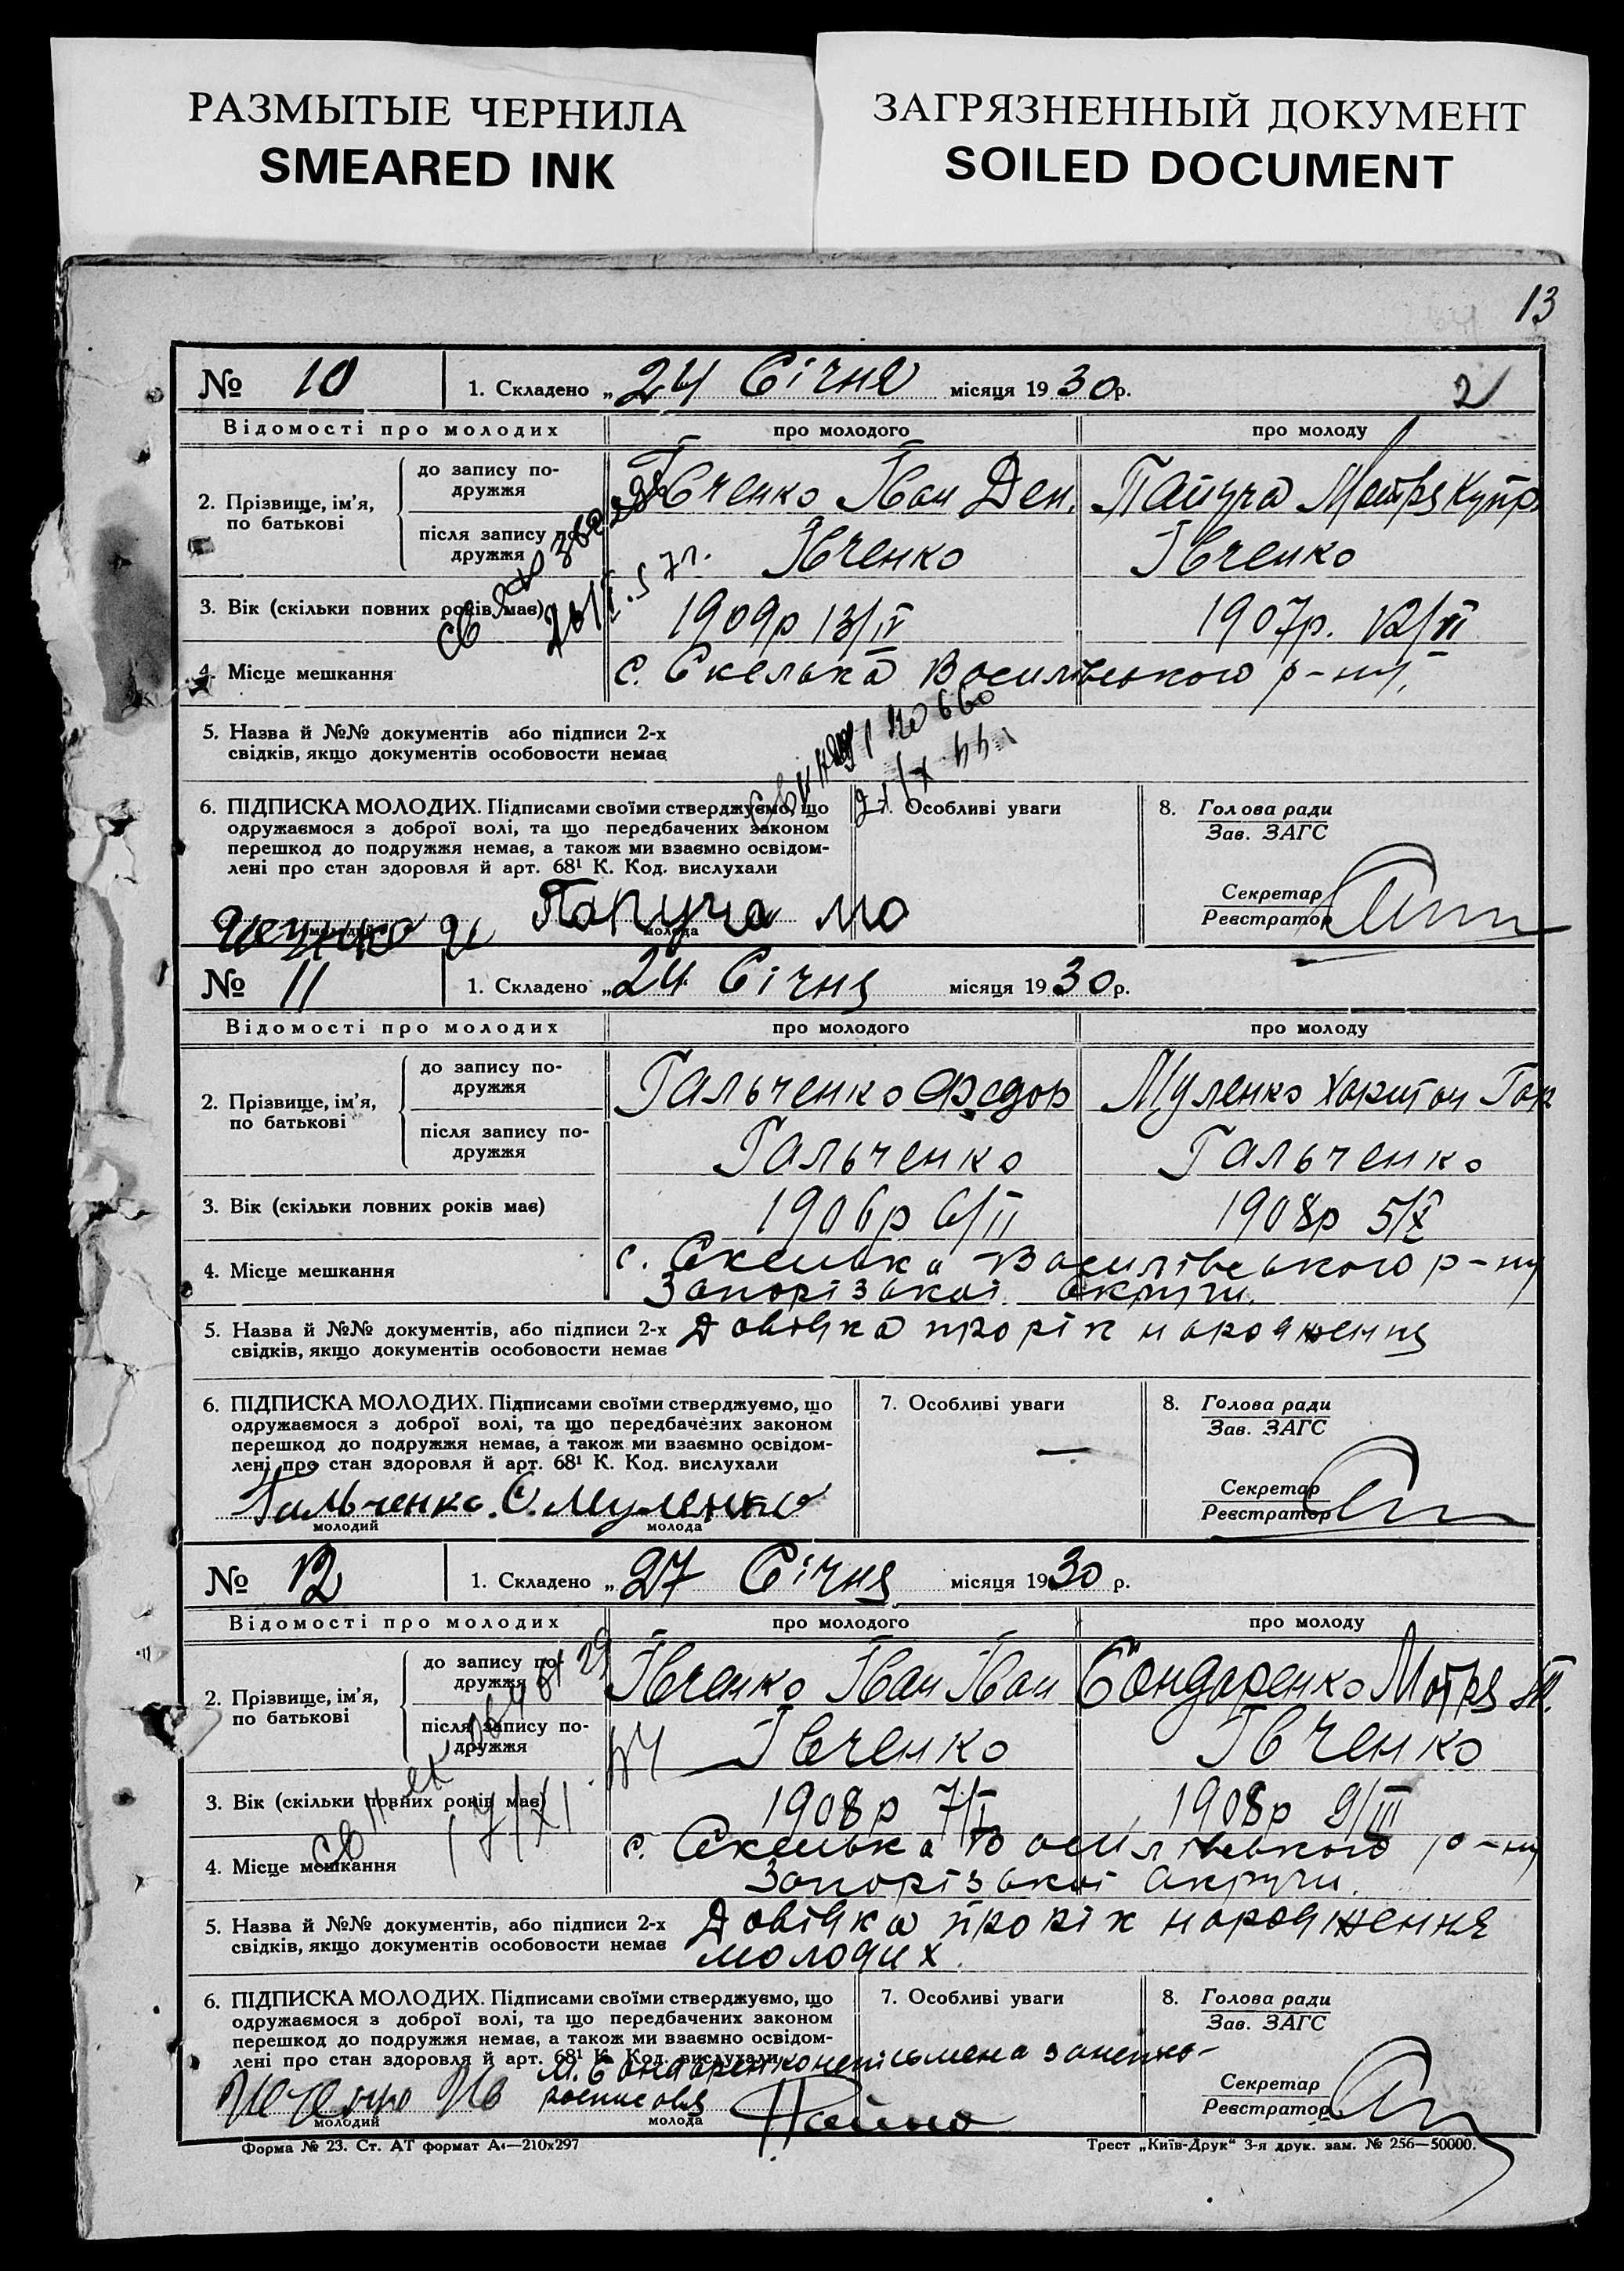 РАЗМЫТЫЕ ЧЕРНИЛА
SMEARED INK
ЗАГРЯЗНЕННЫЙ ДОКУМЕНТ
SOILED DOCUMENT
13
№ 10 1. Складено „24 Січня місяця 1930р. 2
Відомості про молодих про молодого про молоду
2. Прізвище, ім'я, по батькові
до запису по-
дружжя
Івченко Іван Ден. Папуча Мотря Купр
після запису по-
дружжя
Івченко Івченко
3. Вік (скільки повних років має) 1909р 13/IV 1907р. 12/VI
4. Місце мешкання с. Скелька Василівського р-ну,
5. Назва й №№ документів або підписи 2-х
свідків, якщо документів особовости немає
6. ПІДПИСКА МОЛОДИХ. Підписами своїми стверджуємо, що
одружаємося з доброї волі, та що передбачених законом
перешкод до подружжя немає, а також ми взаємно освідом-
лені про стан здоровля й арт. 68¹ К. Код. вислухали
Папуча Мо
молодий молода
7. Особливі уваги
8. Голова ради
Зав. ЗАГС
Секретар
Реєстратор
№ 11 1. Складено „24 Січня місяця 1930р.
Відомості про молодих про молодого про молоду
2. Прізвище, ім'я,
по батькові
до запису по-
дружжя
Гальченко Федор Муленко Харитон Гар
після запису по-
дружжя
Гальченко Гальченко
3. Вік (скільки повних років має) 1906р 6/II 1908р 5/X
4. Місце мешкання с. Скелька Василівського р-ну
Запорізькоі округи.
5. Назва й №№ документів, або підписи 2-х
свідків, якщо документів особовости немає
Довідка прорік народження
6. ПІДПИСКА МОЛОДИХ. Підписами своїми стверджуємо, що
одружаємося з доброї волі, та що передбачених законом
перешкод до подружжя немає, а також ми взаємно освідом-
лені про стан здоровля й арт. 68¹ К. Код. вислухали
Гальченко. С. Муленко
молодий молода
7. Особливі уваги
—
8. Голова ради
Зав. ЗАГС
Секретар
Реєстратор
№ 12 1. Складено „27 Січня місяця 1930 р.
Відомості про молодих про молодого про молоду
2. Прізвище, ім'я,
по батькові
до запису по-
дружжя
Івченко Іван Іван Бондаренко Мотря
після запису по-
дружжя
Івченко Івченко
3. Вік (скільки повних років має) 1908р 7/I 1908р 9/III
17/XI 44
4. Місце мешкання с. Скелька Василівського р-ну
Запорізькоі округи.
5. Назва й №№ документів, або підписи 2-х
свідків, якщо документів особовости немає
Довідка прорік народження
молодих.
6. ПІДПИСКА МОЛОДИХ. Підписами своїми стверджуємо, що
одружаємося з доброї волі, та що передбачених законом
перешкод до подружжя немає, а також ми взаємно освідом-
лені про стан здоровля й арт. 68¹ К. Код. вислухали
М. Бондаренко неписьмена за неї
молодий молода
7. Особливі уваги
8. Голова ради
Зав. ЗАГС
Секретар
Реєстратор
Форма № 23. Ст. АТ формат А₄—210х297 Трест „Київ-Друк" 3-я друк. зам. № 256—50000.